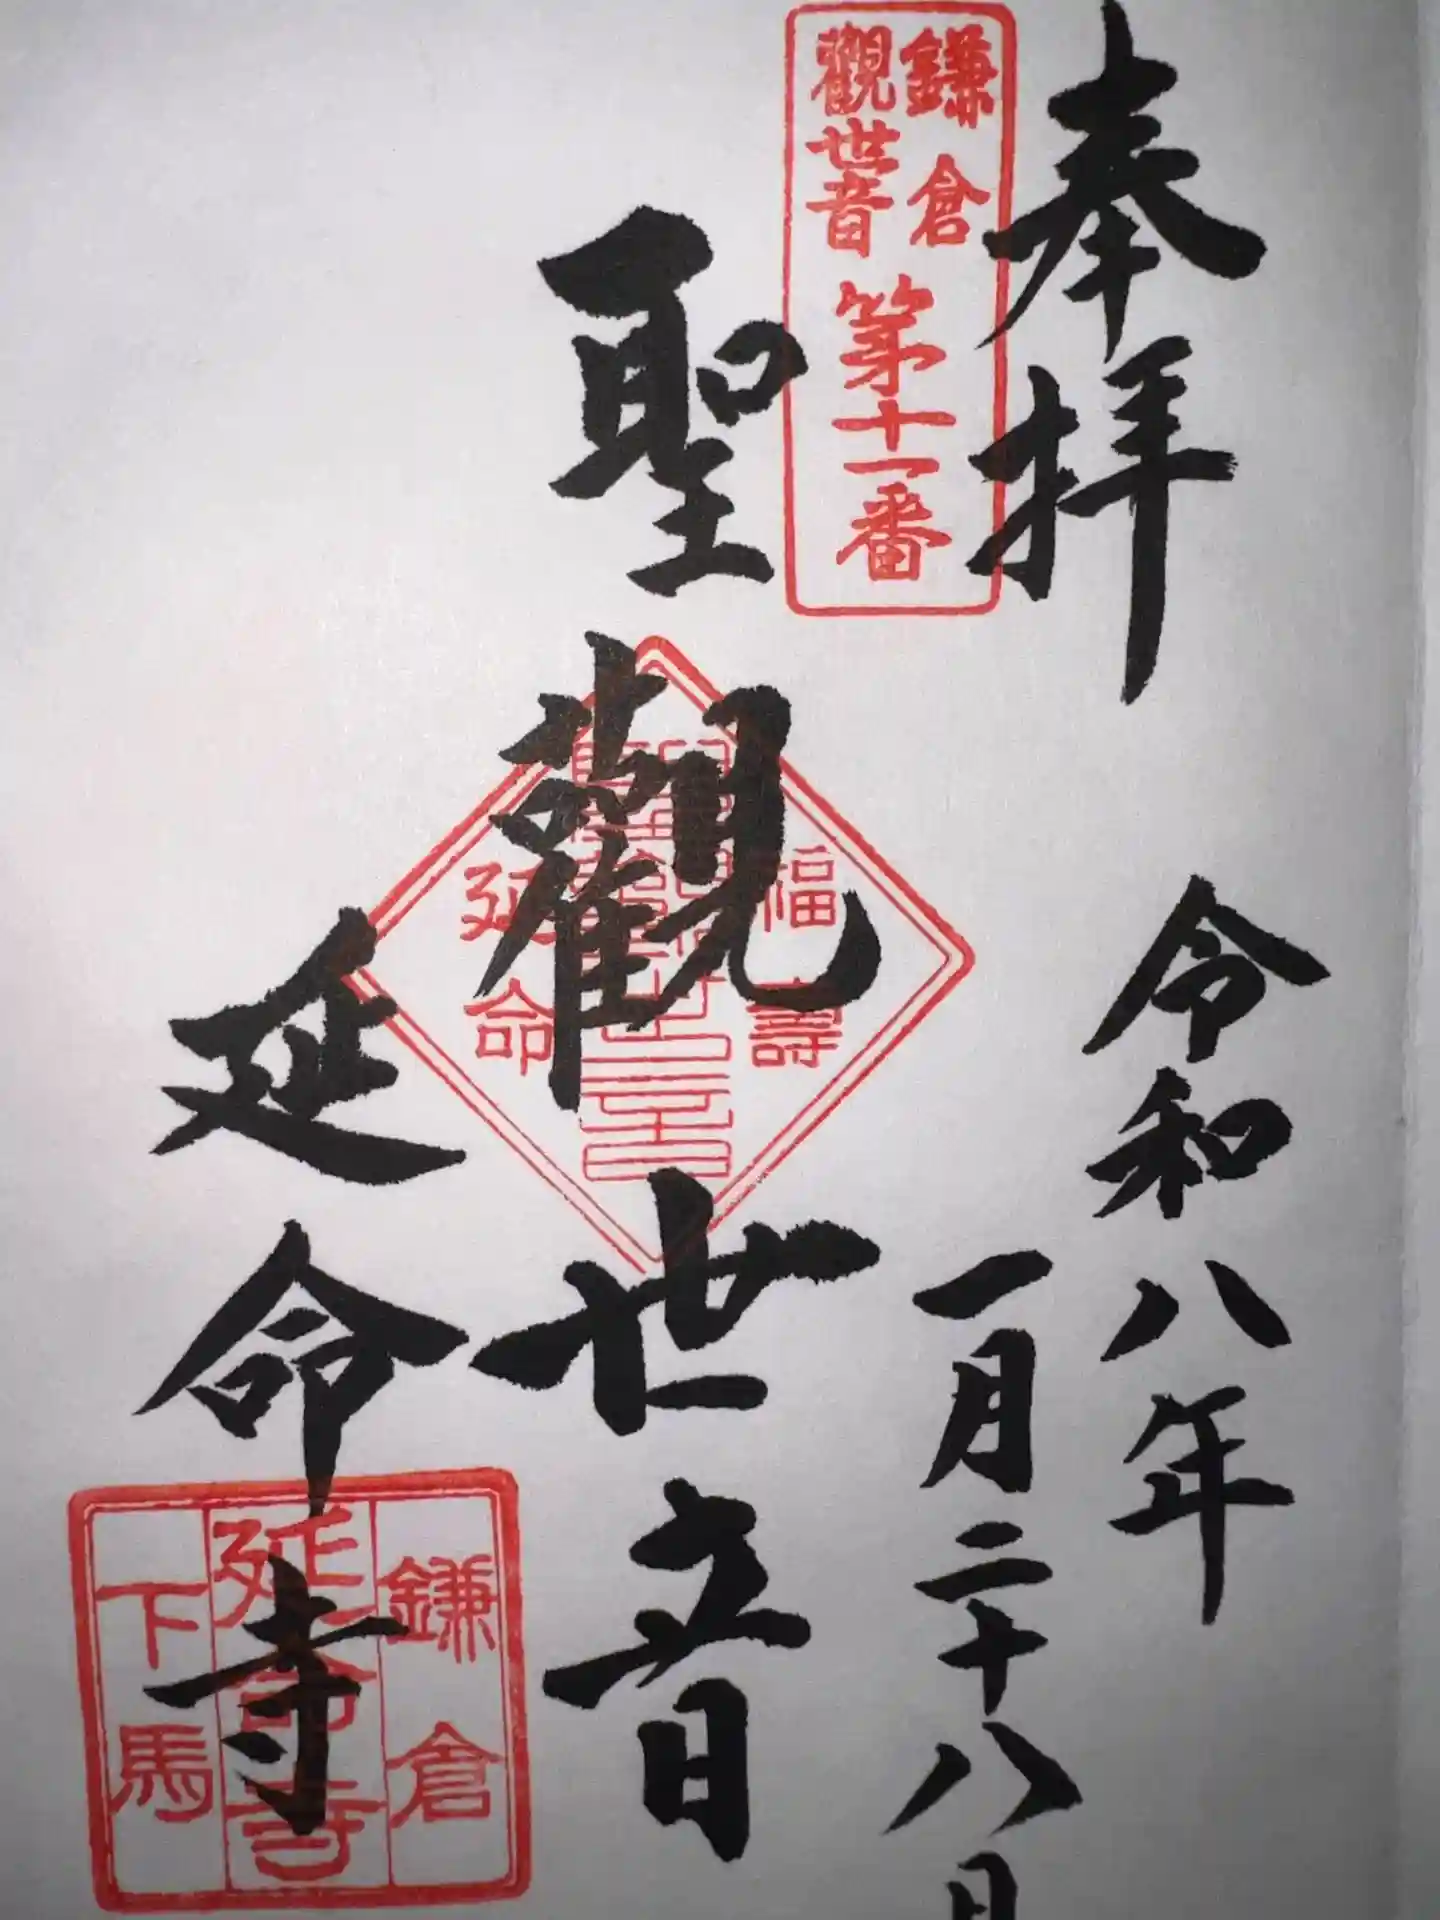 奉拝
令和八年
一月二十八日
鎌倉
觀世音
第十一番
聖觀世音
福壽
延命
延命寺
鎌倉
延命寺
下馬